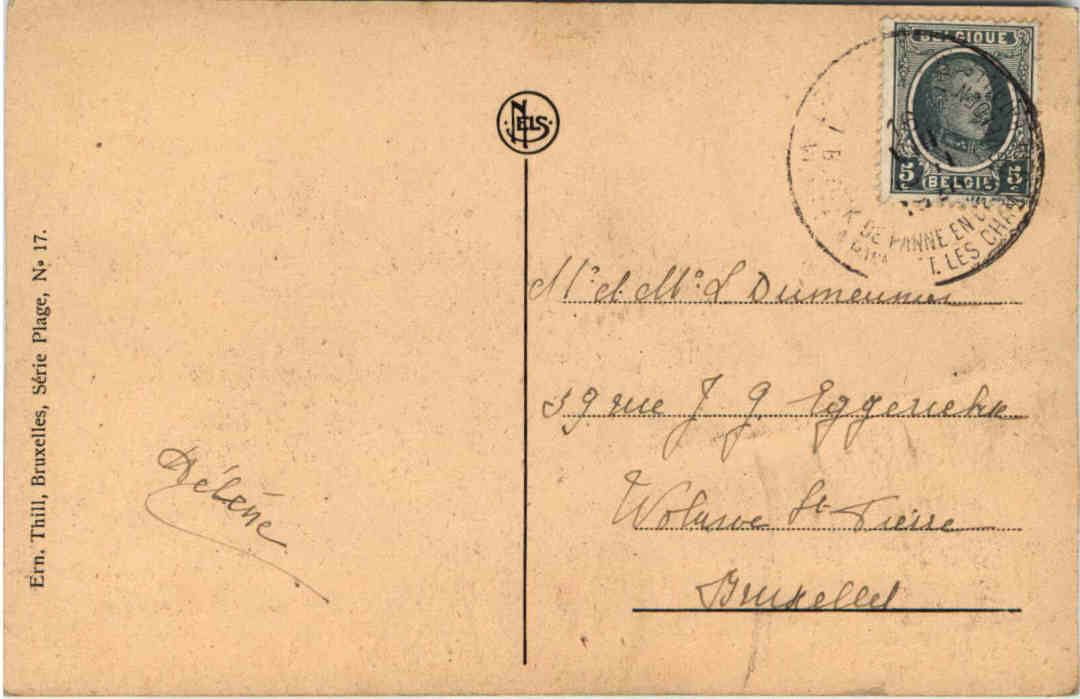 Ern. Thill, Bruxelles, Série Plage, No 17.
NELS
BELGIQUE
5c 5c
BELGIË
DE PANNE EN
LES
Mr et Me L Dumeunier
rue J. G. Eggerickx
Woluwe St Pierre
Bruxelles
Hélène